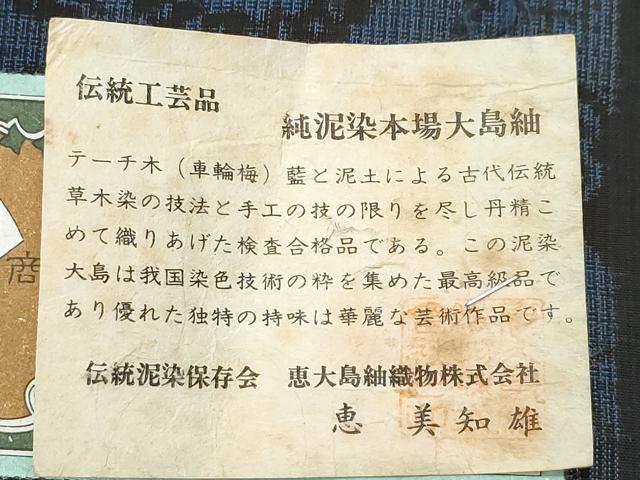 伝統工芸品
純泥染本場大島紬
テーチ木（車輪梅）藍と泥土による古代伝統
草木染の技法と手工の技の限りを尽し丹精こ
めて織りあげた検査合格品である。この泥染
大島は我国染色技術の粋を集めた最高級品で
あり優れた独特の持味は華麗な芸術作品です。
伝統泥染保存会　恵大島紬織物株式会社
恵　美知雄
商